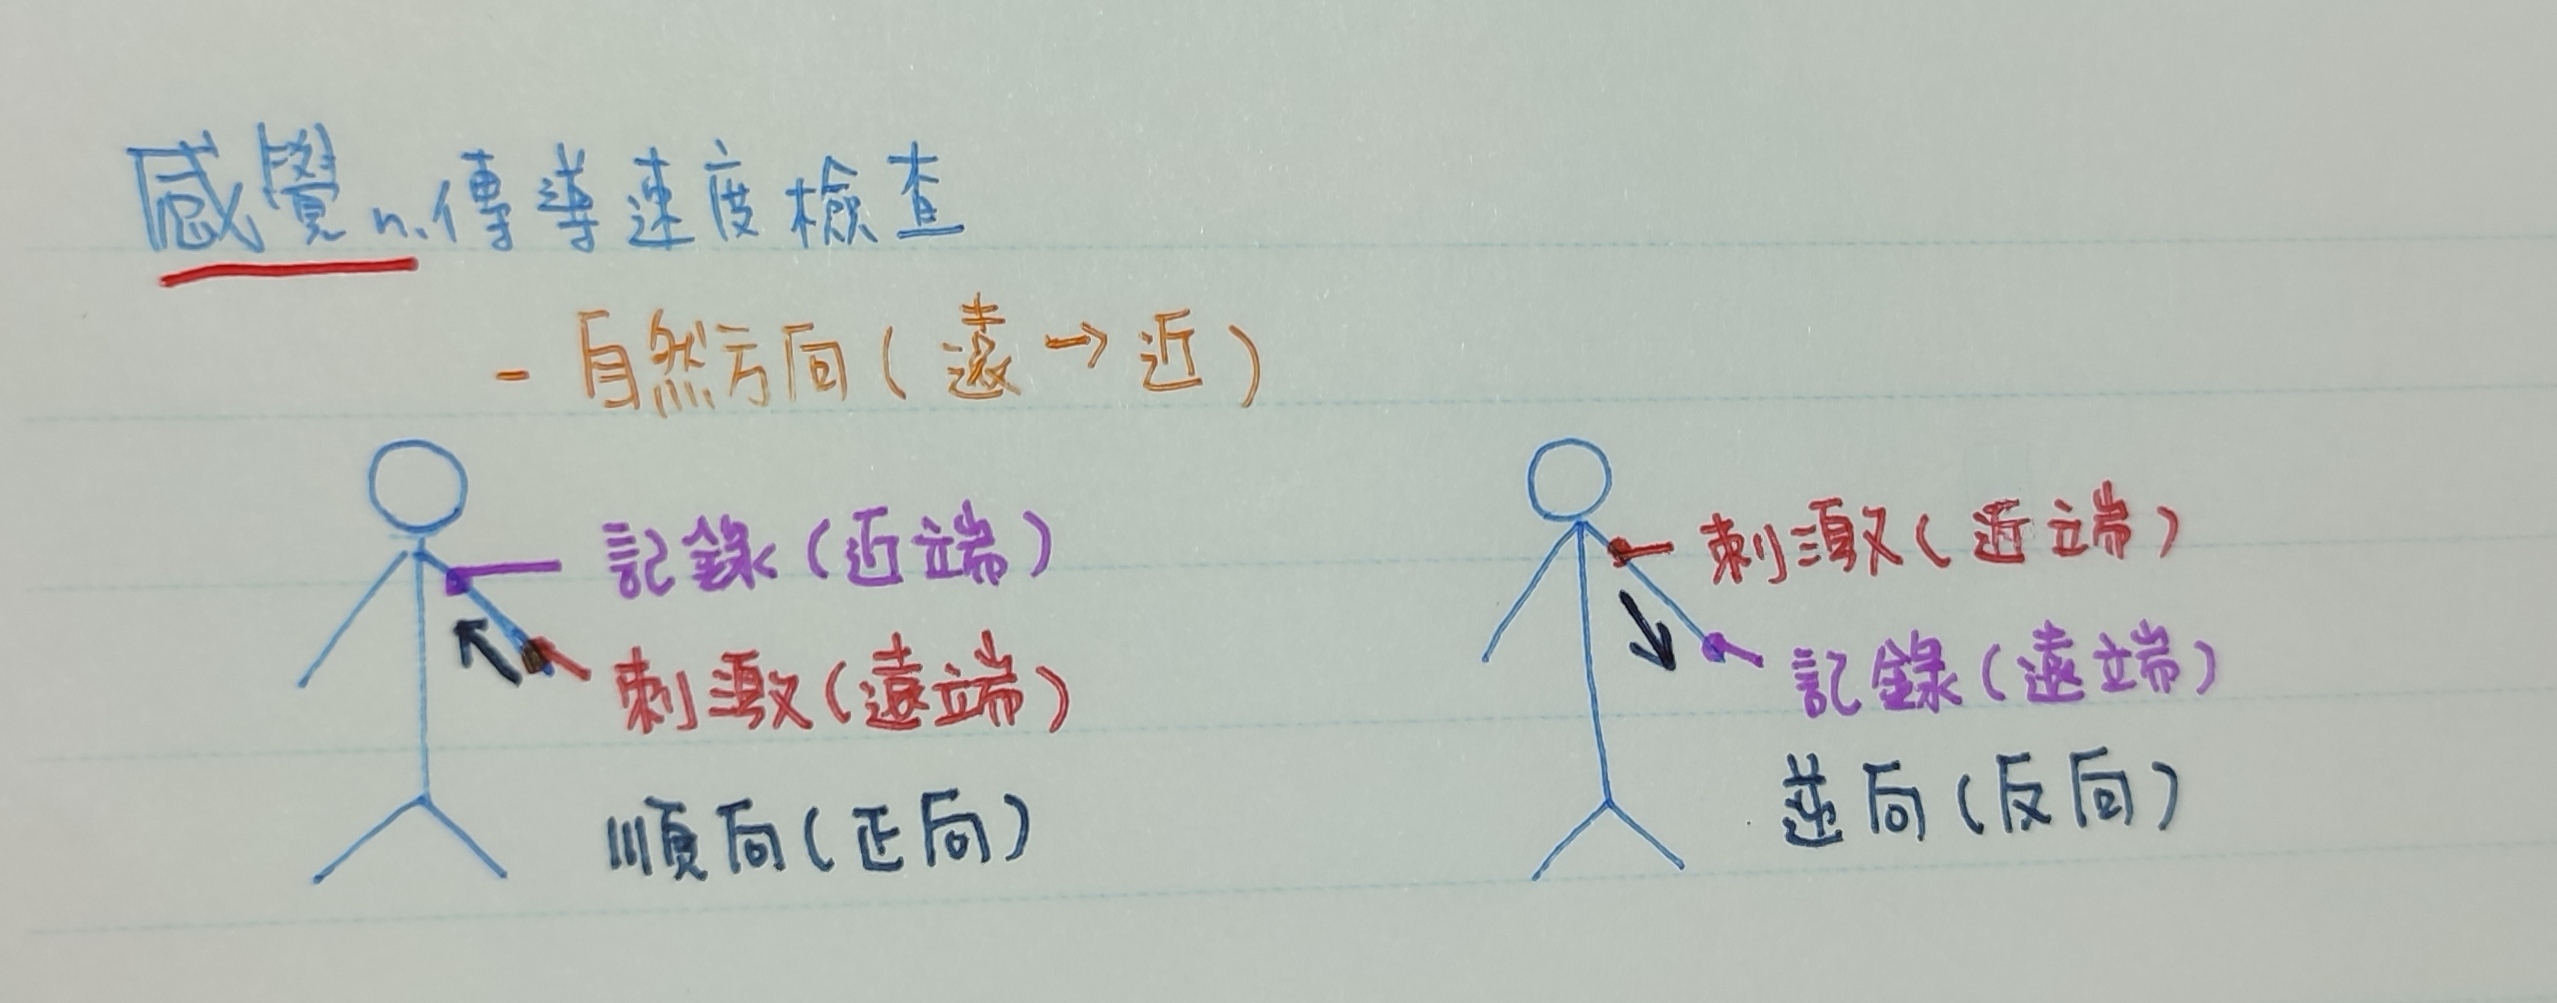 感覺n.傳導速度檢查
- 自然方向(遠→近)
記錄(近端)
刺激(遠端)
順向(正向)
刺激(近端)
記錄(遠端)
逆向(反向)